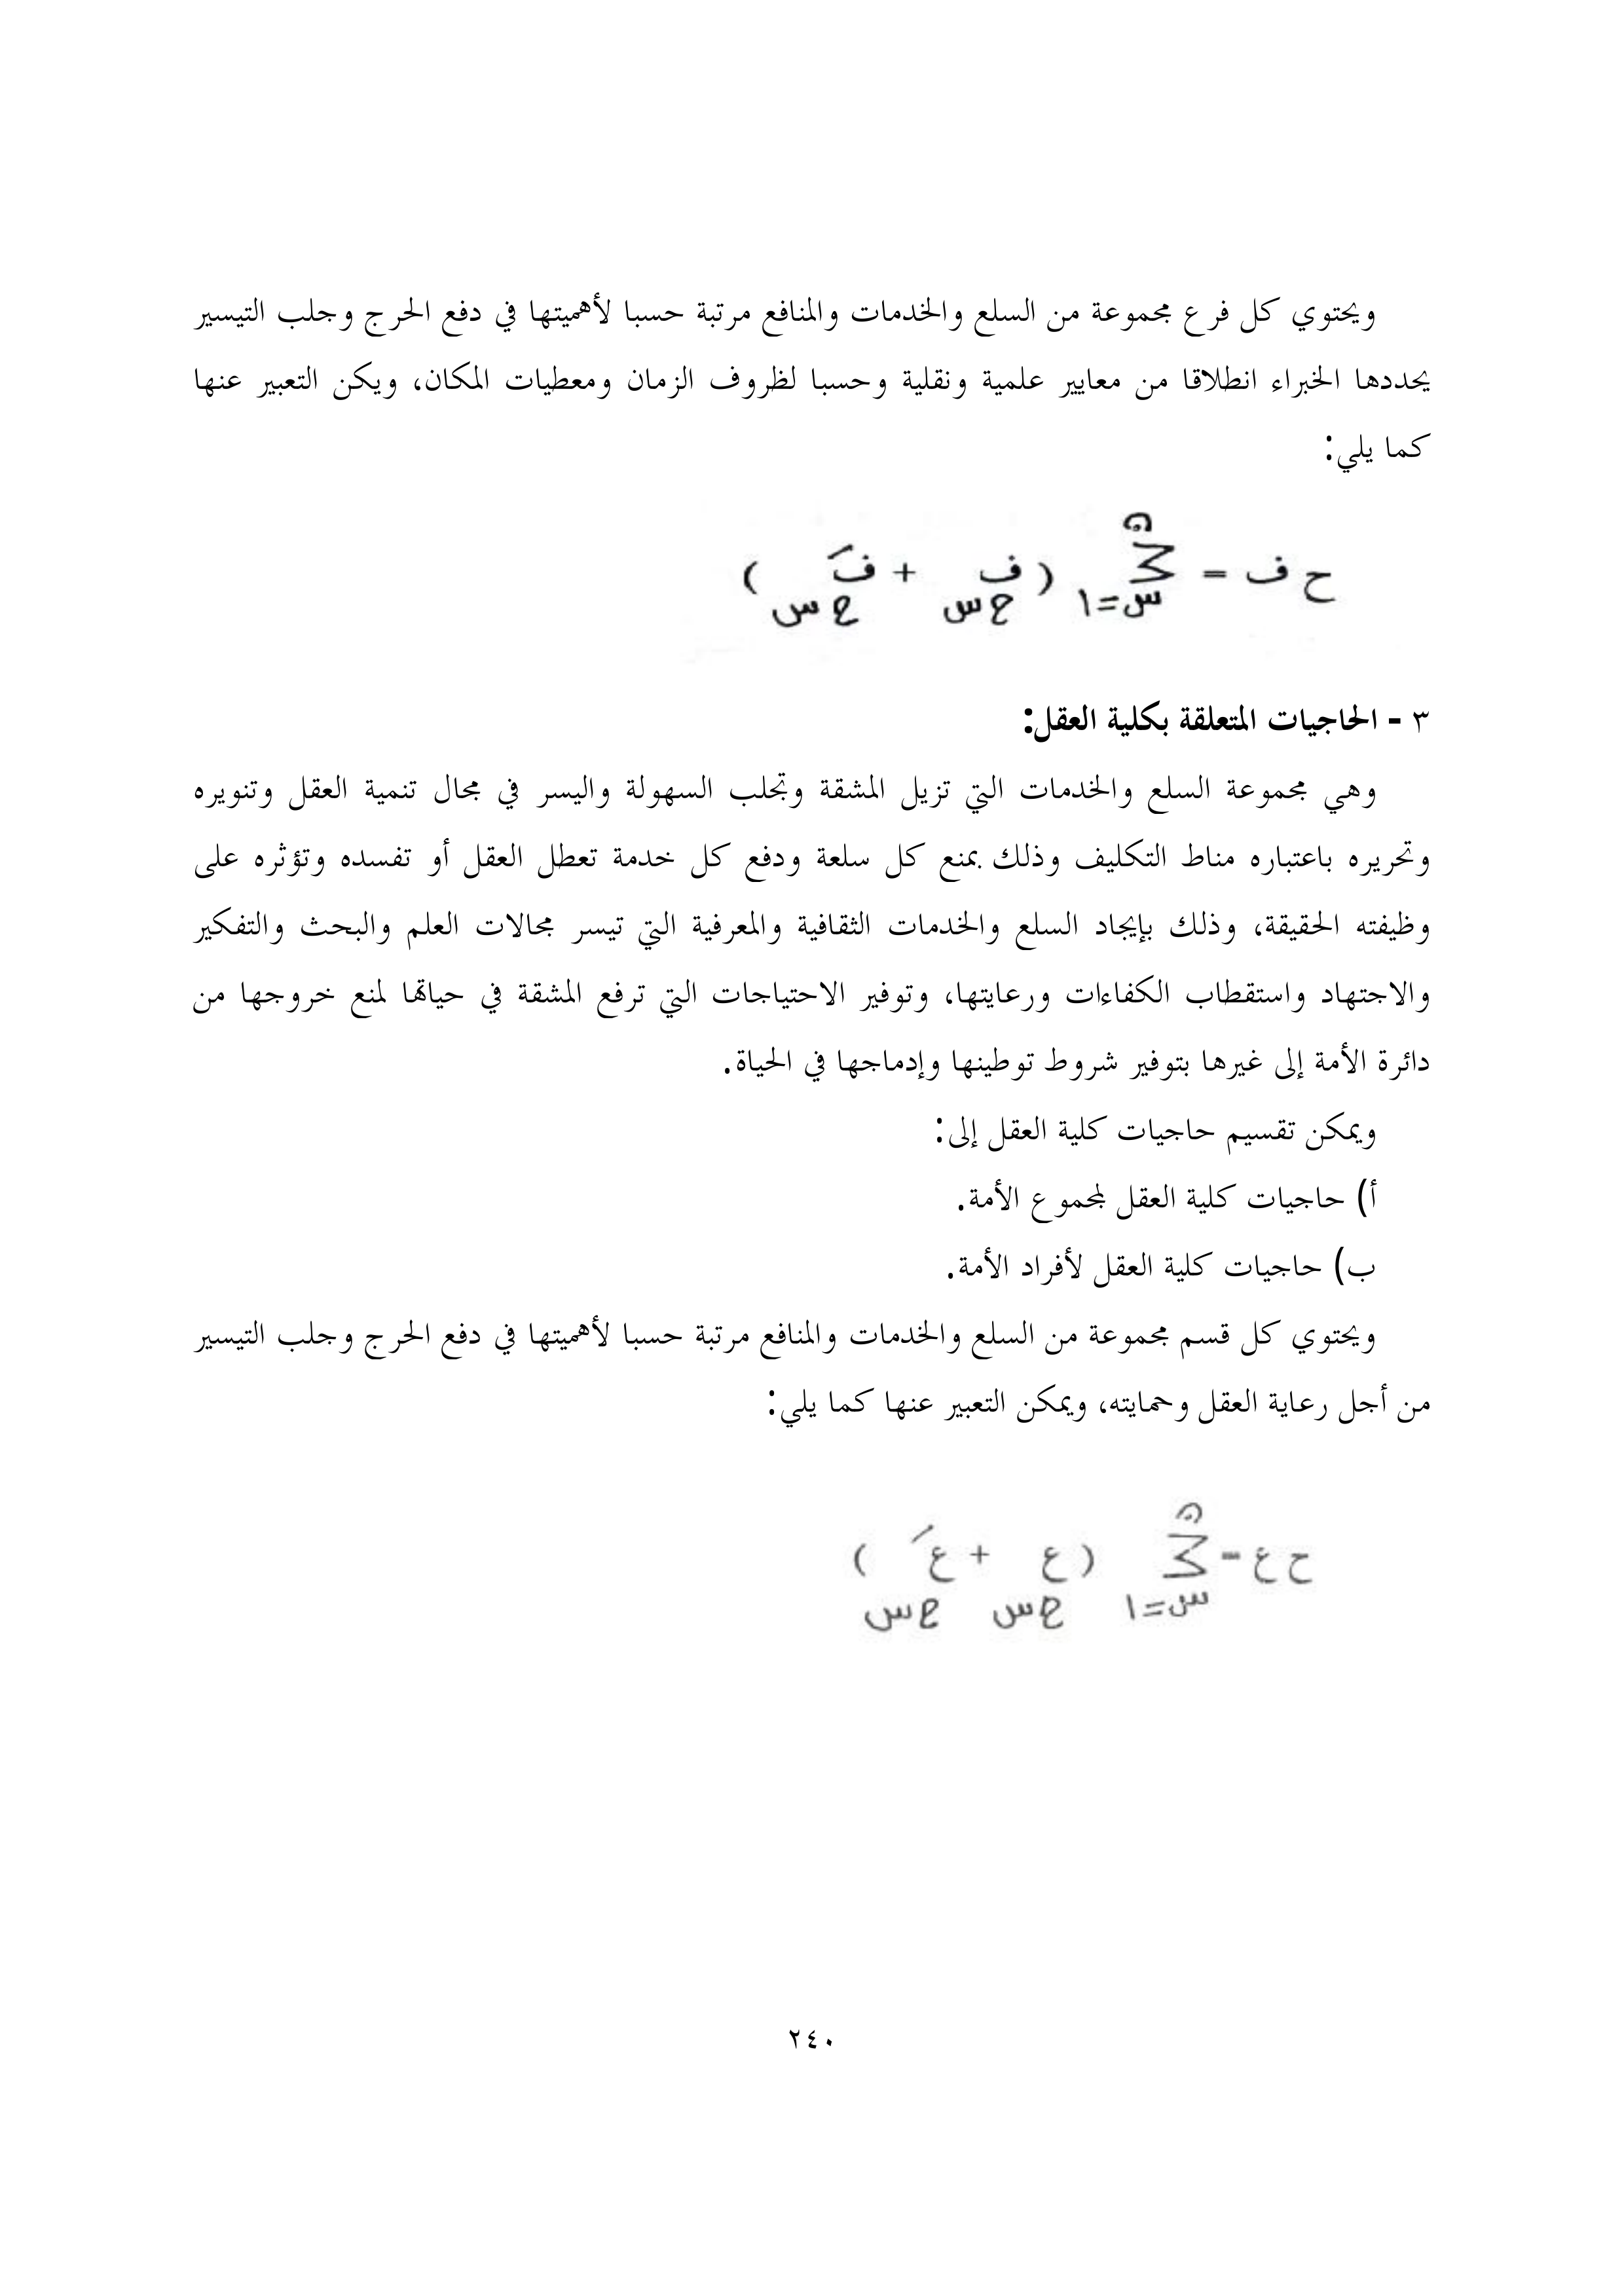 ويحتوي كل فرع مجموعة من السلع والخدمات والمنافع مرتبة حسبا لأهميتها في دفع الحرج وجلب التيسير
يحددها الخبراء انطلاقا من معايير علمية ونقلية وحسبا لظروف الزمان ومعطيات المكان، ويكن التعبير عنها
كما يلي:
ن
ح ف = Σ ( ف + فَ )
س=١ ح س ح س
٣ - الحاجيات المتعلقة بكلية العقل:
وهي مجموعة السلع والخدمات التي تزيل المشقة وتجلب السهولة واليسر في مجال تنمية العقل وتنويره
وتحريره باعتباره مناط التكليف وذلك بمنع كل سلعة ودفع كل خدمة تعطل العقل أو تفسده وتؤثره على
وظيفته الحقيقة، وذلك بإيجاد السلع والخدمات الثقافية والمعرفية التي تيسر مجالات العلم والبحث والتفكير
والاجتهاد واستقطاب الكفاءات ورعايتها، وتوفير الاحتياجات التي ترفع المشقة في حياتها لمنع خروجها من
دائرة الأمة إلى غيرها بتوفير شروط توطينها وإدماجها في الحياة.
ويمكن تقسيم حاجيات كلية العقل إلى:
أ) حاجيات كلية العقل لمجموع الأمة.
ب) حاجيات كلية العقل لأفراد الأمة.
ويحتوي كل قسم مجموعة من السلع والخدمات والمنافع مرتبة حسبا لأهميتها في دفع الحرج وجلب التيسير
من أجل رعاية العقل وحمايته، ويمكن التعبير عنها كما يلي:
ن
ح ع = Σ ( ع + عَ )
س=١ ح س ح س
٢٤٠